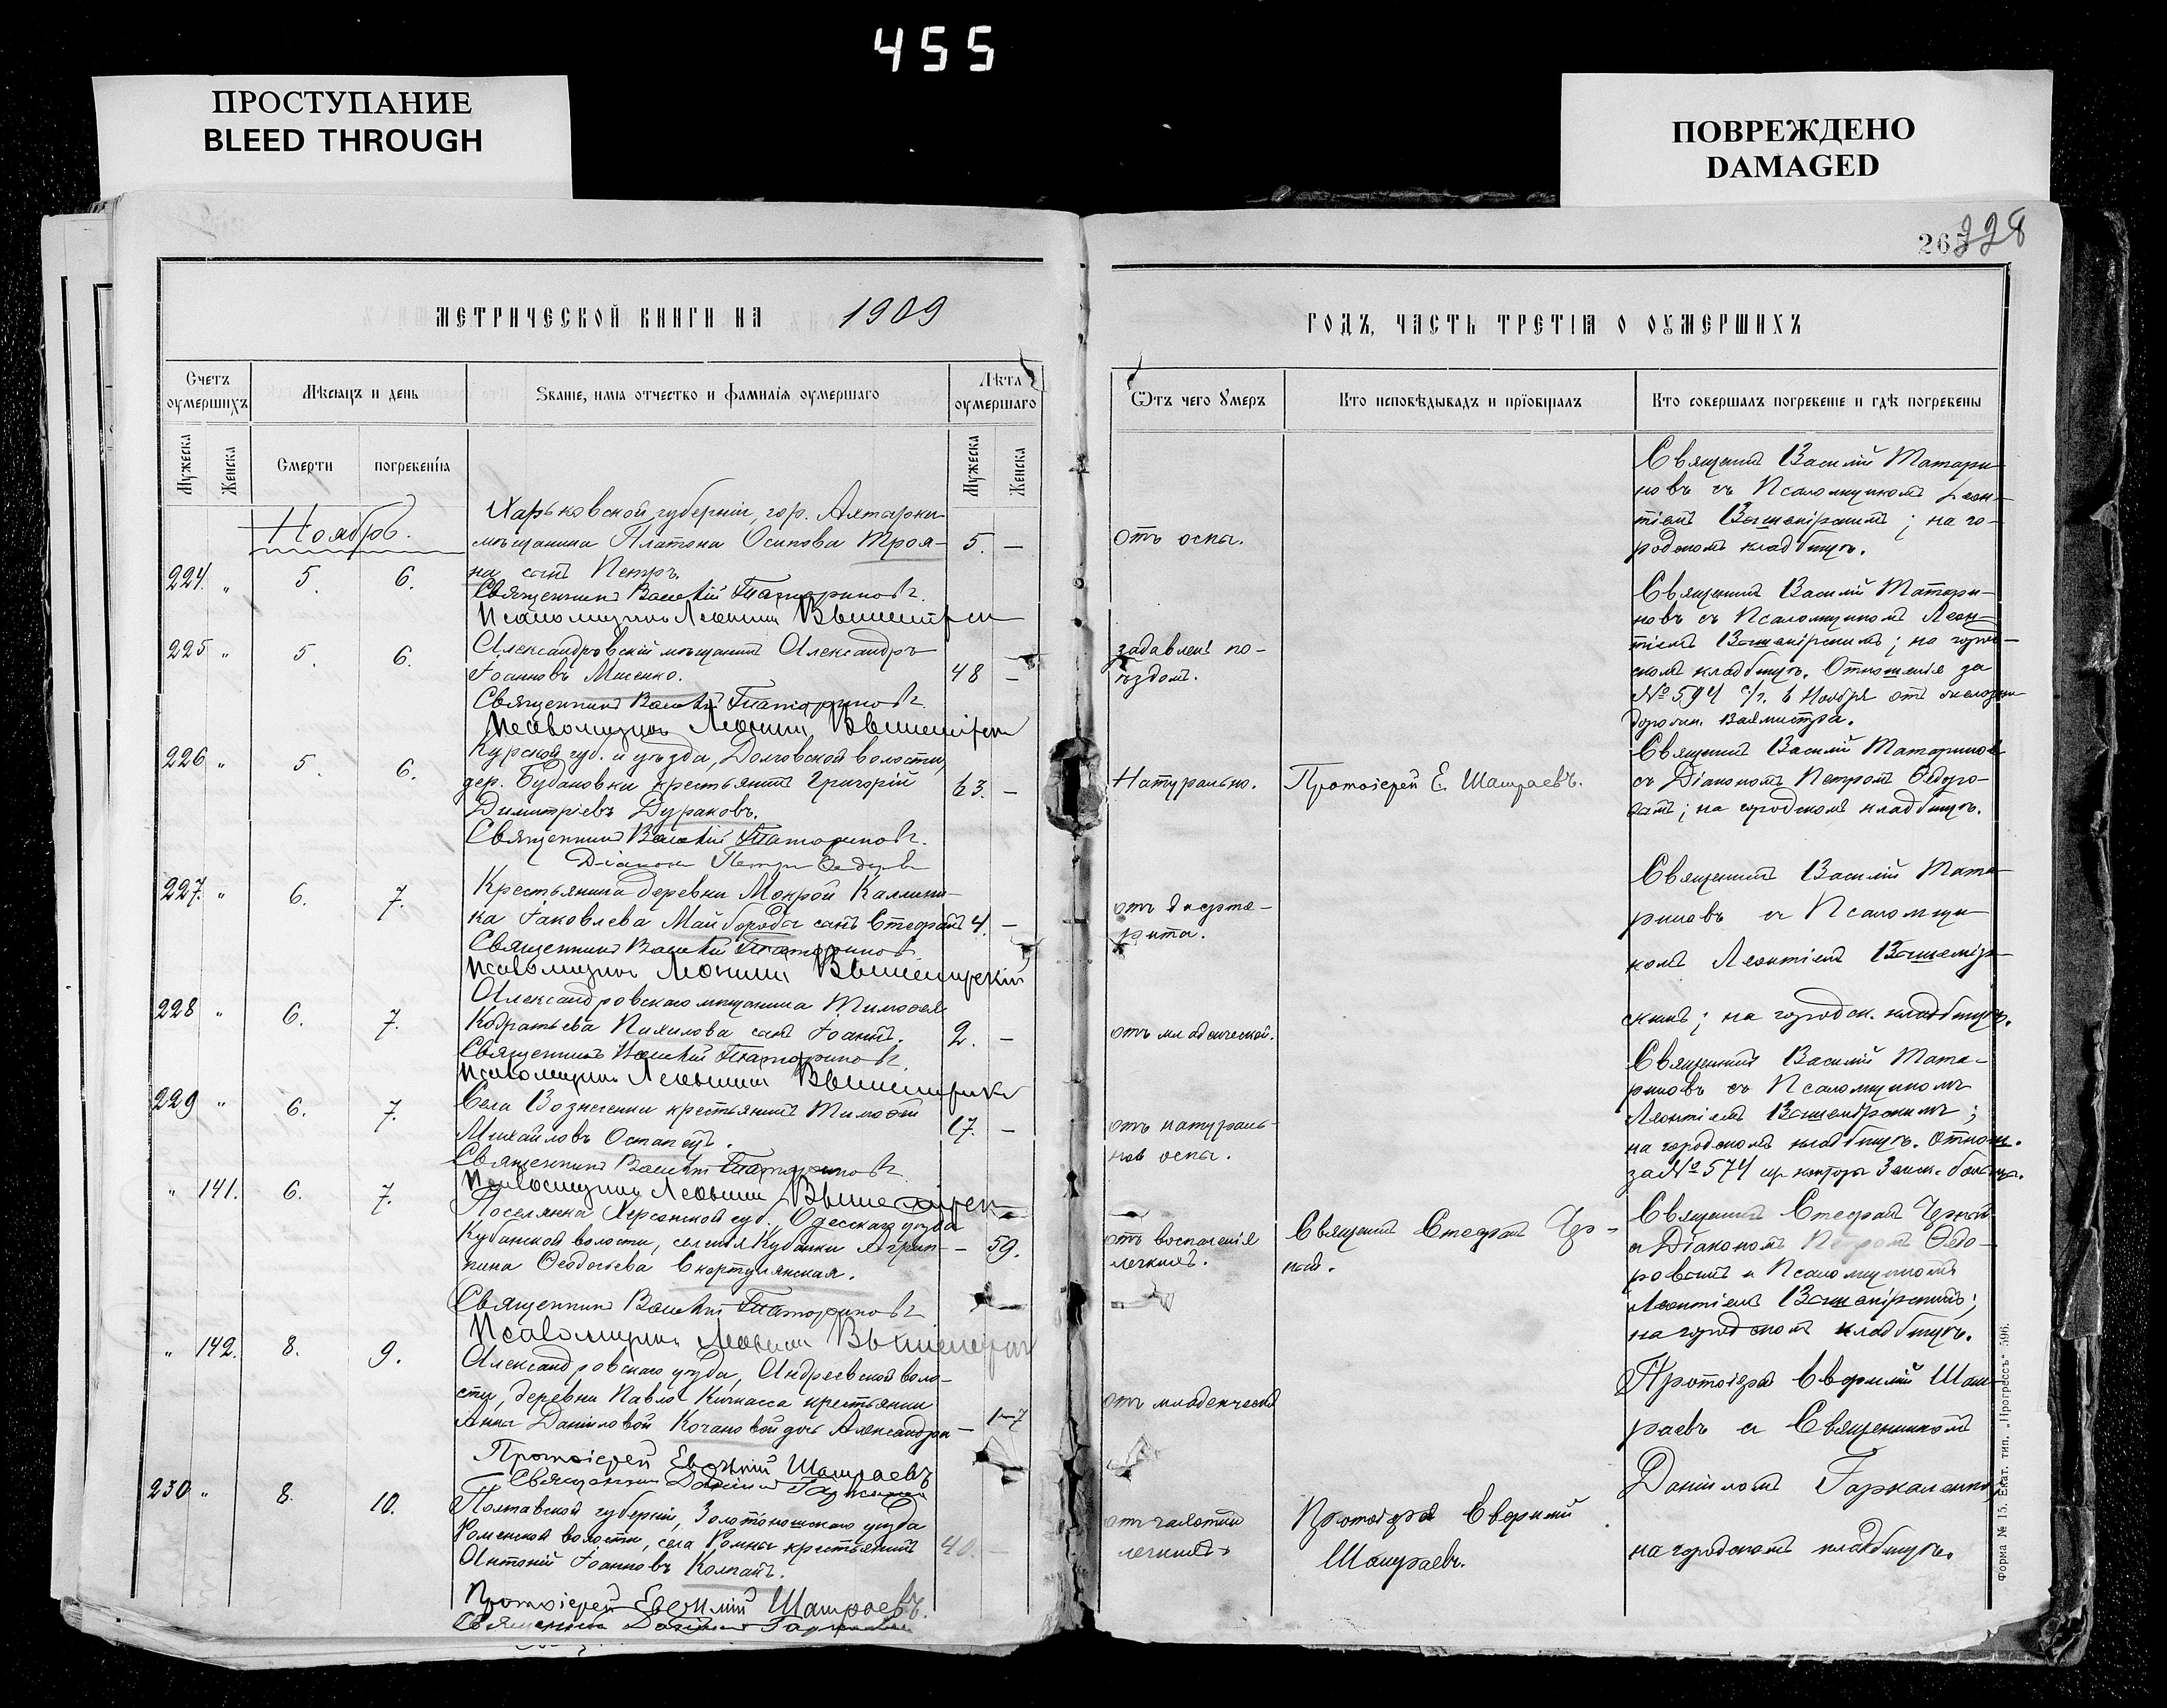 455
ПРОСТУПАНИЕ
BLEED THROUGH
ПОВРЕЖДЕНО
DAMAGED
228
МЕТРИЧЕСКОЙ КНИГИ НА 1909
Счетъ оумершихъ
Мужеска
Женска
Мѣсяцъ и день
Смерти
погребенія
Званіе, имя отчество и фамилія оумершаго
Лѣта оумершаго
Мужеска
Женска
Ноябрь.
224. „ 5. 6.
Харьковской губерніи, гор. Ахтырки
мѣщанина Платона Осипова Троя- 5. —
на сынъ Петръ.
Священникъ Василій Татариновъ
Псаломщикъ Леонтій
225 „ 5. 6.
Александровскій мѣщанинъ Александръ
Іоанновъ Мисенко. 48 —
Священникъ Василій Татариновъ
Псаломщикъ Леонтій
226 „ 5. 6.
Курской губ. и уѣзда, Долговской волости,
дер. Будановки крестьянинъ Григорій 63. —
Димитріевъ Дураковъ.
Священникъ Василій Татариновъ
Діаконъ Петръ
227. „ 6. 7.
Крестьянина деревни Мокрой Калини-
ка Іаковлева Майборода сынъ Стефанъ 4. —
Священникъ Василій Татариновъ
Псаломщикъ Леонтій
228 „ 6. 7.
Александровскаго мѣщанина Тимофея
Кодратьева Пихилова сынъ Іоаннъ. 2. —
Священникъ Василій Татариновъ
Псаломщикъ Леонтій
229 „ 6. 7.
Села Вознесенки крестьянинъ Тимофей
Михайловъ Остапецъ. 17. —
Священникъ Василій Татариновъ
Псаломщикъ Леонтій
„ 141. 6. 7.
Поселянка Херсонской губ., Одесскаго уѣзда
Кубанской волости, селенія Кубанки Агрип- — 59.
пина Феодосьева Скортулянская.
Священникъ Василій Татариновъ
Псаломщикъ Леонтій
„ 142. 8. 9.
Александровскаго уѣзда, Андреевской воло-
сти, деревни Павло Кичкасса крестьянки
Анны Даниловой Кочановой дочь Александра — 1-7
Протоіерей Евфимій Шашраевъ
Священникъ Даніилъ
230 „ 8. 10.
Полтавской губерніи, Золотоношскаго уѣзда
Роменской волости, села Ромны крестьянинъ 40. —
Антоній Іоанновъ Колпакъ.
Протоіерей Евфимій Шашраевъ.
Священникъ Даніилъ
ГОДЪ, ЧАСТЬ ТРЕТІЯ О ОУМЕРШИХЪ
Ѿтъ чего Умеръ
Кто исповѣдывалъ и пріобщалъ
Кто совершалъ погребеніе и гдѣ погребены
отъ оспы.
Священникъ Василій Татари-
новъ съ Псаломщикомъ Леон-
тіемъ; на го-
родскомъ кладбищѣ.
задавленъ по-
ѣздомъ.
Священникъ Василій Татари-
новъ съ Псаломщикомъ Леон-
тіемъ; на город-
скомъ кладбищѣ. Отношенія за
№ 594 6 Ноября отъ
Вахмистра.
Натурально.
Протоіерей Е. Шашраевъ.
Священникъ Василій Татариновъ
съ Діакономъ Петромъ Федоро-
; на городскомъ кладбищѣ.
отъ дифте-
рита.
Священникъ Василій Тата-
риновъ съ Псаломщи-
комъ Леонтіемъ
скимъ; на городск. кладбищѣ.
отъ младенческой.
Священникъ Василій Тата-
риновъ съ Псаломщикомъ
Леонтіемъ;
на городскомъ кладбищѣ. Отнош.
за № 574 конторы Земск. больницы.
отъ натураль-
ной оспы.
отъ воспаленія
легкихъ.
Священникъ Стефанъ Чер-
ный.
Священникъ Стефанъ Черный
съ Діакономъ Петромъ Федо-
и Псаломщикомъ
Леонтіемъ;
на городскомъ кладбищѣ.
отъ младенческой
Протоіерей Евфимій Шаш-
раевъ съ Священникомъ
Даніиломъ Гаркаленко
на городскомъ кладбищѣ.
отъ чахотки
легкихъ
Протоіерей Евфимій
Шашраевъ.
Форма № 15. Екат. тип. „Прогрессъ“ 596.